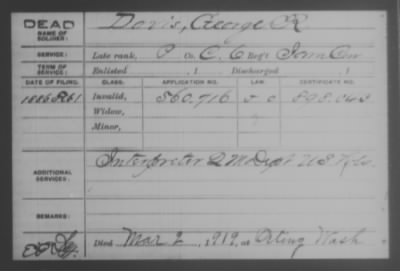 DEAD
NAME OF SOLDIER:
Davis, George R
SERVICE:
Late rank, P Co. C, 6 Reg't Iowa Cav
TERM OF SERVICE:
Enlisted , 1 Discharged , 1
DATE OF FILING. CLASS. APPLICATION NO. LAW. CERTIFICATE NO.
1886 Invalid, 560.716
Widow,
Minor,
ADDITIONAL SERVICES:
Interpreter Q M Dept U S Vols.
REMARKS:
Died Mar 2, 1919, at Orting Wash